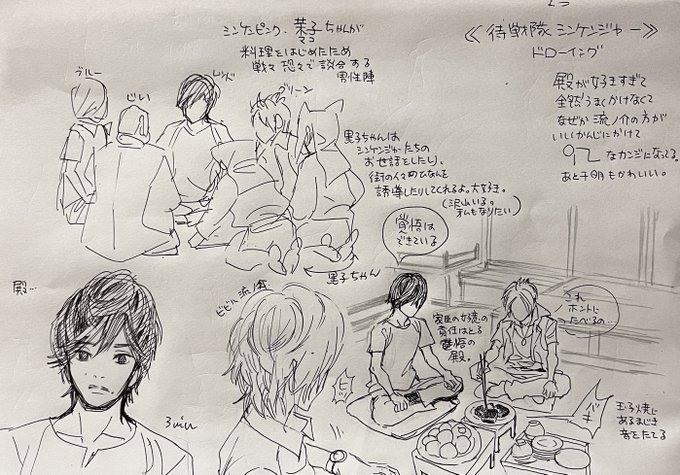 ≪侍戦隊シンケンジャー≫
ドローイング
シンケンピンク・茉子ちゃんが
マコ
料理をはじめたため
戦々恐々で談合する
男性陣
ブルー
じい
レッド
グリーン
殿が好きすぎて
全然うまくかけなくて
なぜか流ノ介の方が
いいかんじにかけて
なカンジになってる。
あと千明もかわいい。
黒子ちゃんは
シンケンジャーたちの
お世話をしたり、
街の人々のひなんを
誘導したりしてくれるよ。大好き。
(沢山いる。
私もなりたい)
黒子ちゃん
覚悟は
できている
殿…
3min
ビビル流ノ介
家臣の女子の
責任はとる
覚悟の
殿。
これ
ホントに
たべるの…
玉子焼に
あるまじき
音をたてる